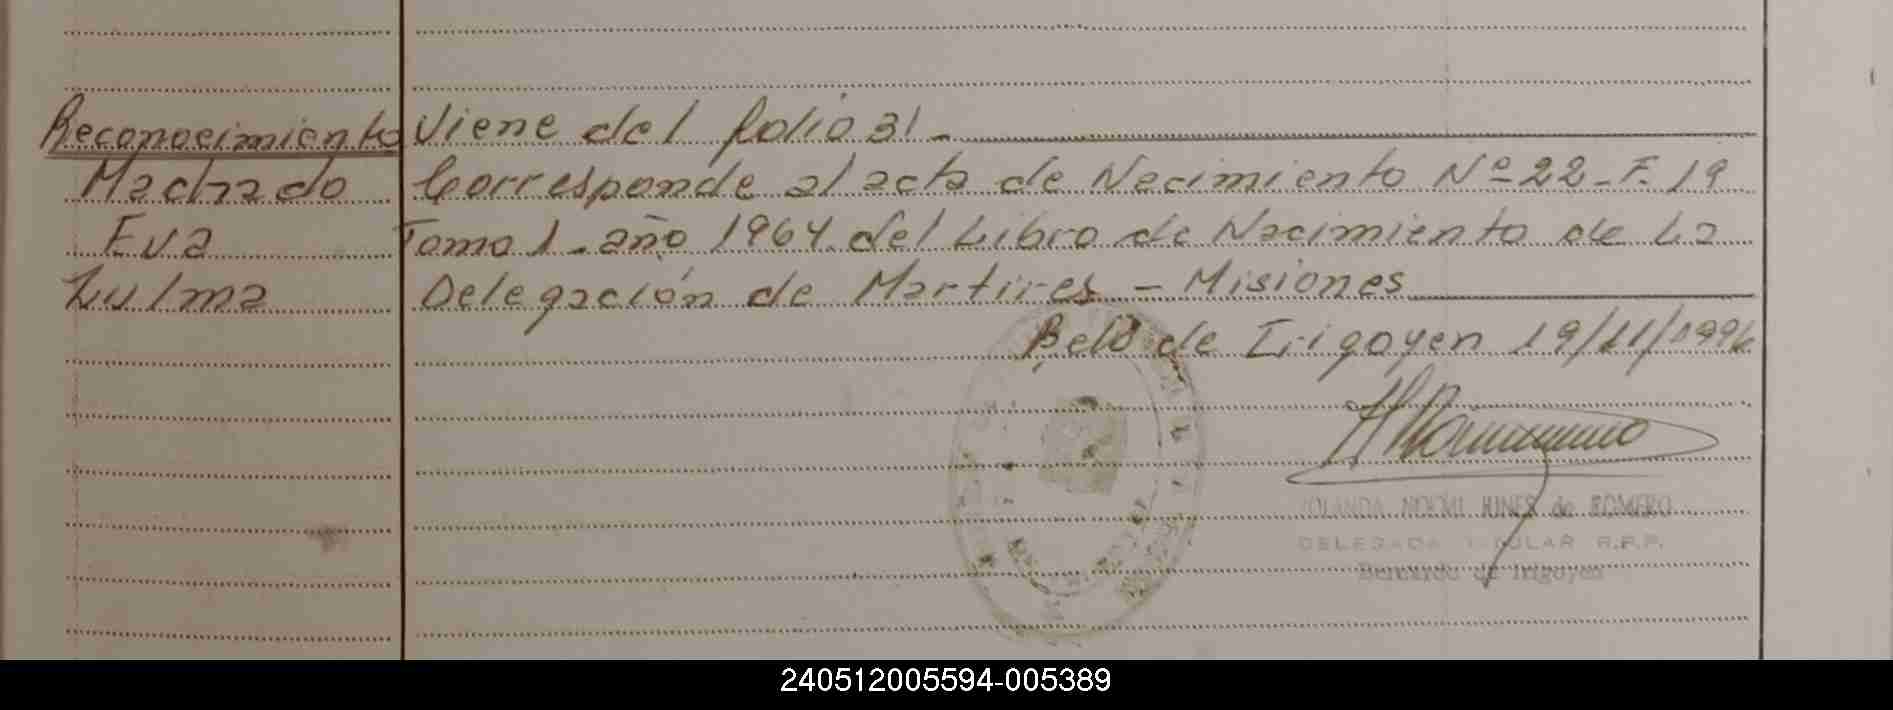 Reconocimiento Viene del folio 31 -
Machado Corresponde al acta de Nacimiento Nº 22 - F. 19
Eva Tomo 1 - año 1964 del Libro de Nacimiento de La
Zulma Delegación de Martires - Misiones
Bdo de Irigoyen 19/11/1996
YOLANDA NOEMI HINES de ROMERO
DELEGADA TITULAR R.P.P.
Bernardo de Irigoyen
240512005594-005389